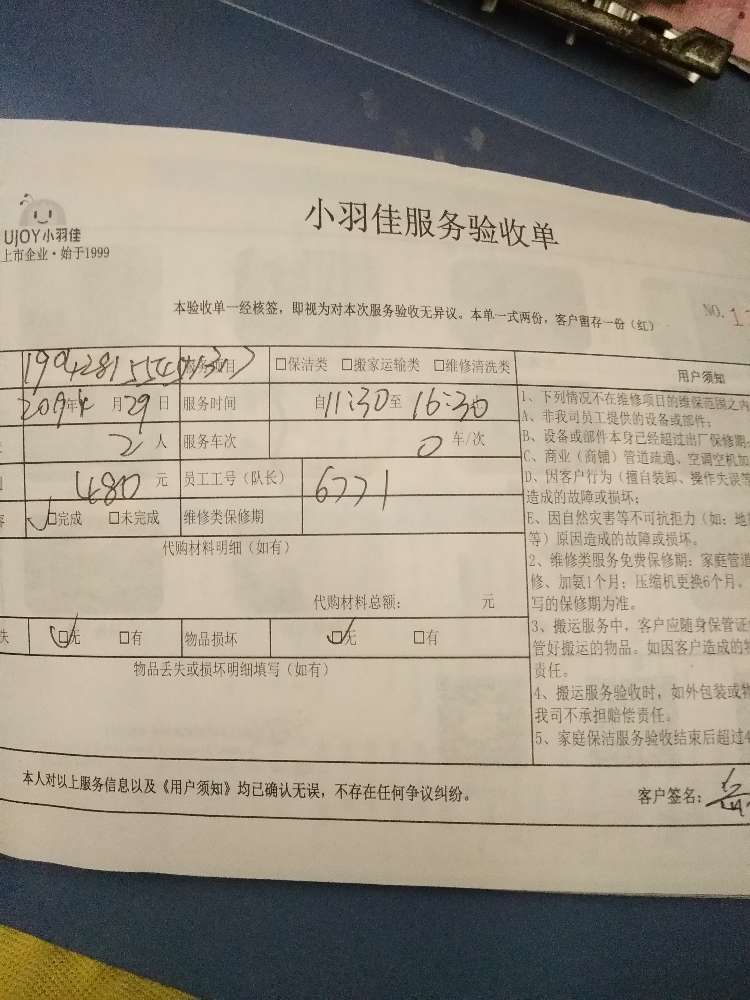 小羽佳服务验收单
UJOY小羽佳
上市企业·始于1999
本验收单一经核签，即视为对本次服务验收无异议。本单一式两份，客户留存一份（红）
NO. 1
□保洁类 □搬家运输类 □维修清洗类
用户须知
2019年4月29日 服务时间 自11:30至16:30
2人 服务车次 0车/次
480元 员工工号（队长） 6771
□完成 □未完成 维修类保修期
代购材料明细（如有）
代购材料总额： 元
□无 □有 物品损坏 □无 □有
物品丢失或损坏明细填写（如有）
1、下列情况不在维修项目的维保范围之内
A、非我司员工提供的设备或部件；
B、设备或部件本身已经超过出厂保修期
C、商业（商铺）管道疏通、空调空机加
D、因客户行为（擅自装卸、操作失误等
造成的故障或损坏；
E、因自然灾害等不可抗拒力（如：地
等）原因造成的故障或损坏。
2、维修类服务免费保修期：家庭管道
修、加氨1个月；压缩机更换6个月。
写的保修期为准。
3、搬运服务中，客户应随身保管证
管好搬运的物品。如因客户造成的
责任。
4、搬运服务验收时，如外包装或物
我司不承担赔偿责任。
5、家庭保洁服务验收结束后超过4
本人对以上服务信息以及《用户须知》均已确认无误，不存在任何争议纠纷。
客户签名：